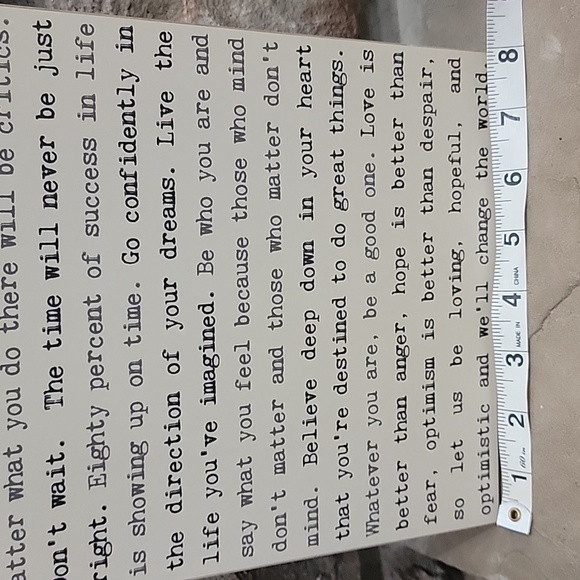 atter what you do there will be critics.
Don't wait. The time will never be just
right. Eighty percent of success in life
is showing up on time. Go confidently in
the direction of your dreams. Live the
life you've imagined. Be who you are and
say what you feel because those who mind
don't matter and those who matter don't
mind. Believe deep down in your heart
that you're destined to do great things.
Whatever you are, be a good one. Love is
better than anger, hope is better than
fear, optimism is better than despair,
so let us be loving, hopeful, and
optimistic and we'll change the world.
1 60 in 2 3 MADE IN 4 CHINA 5 6 7 8